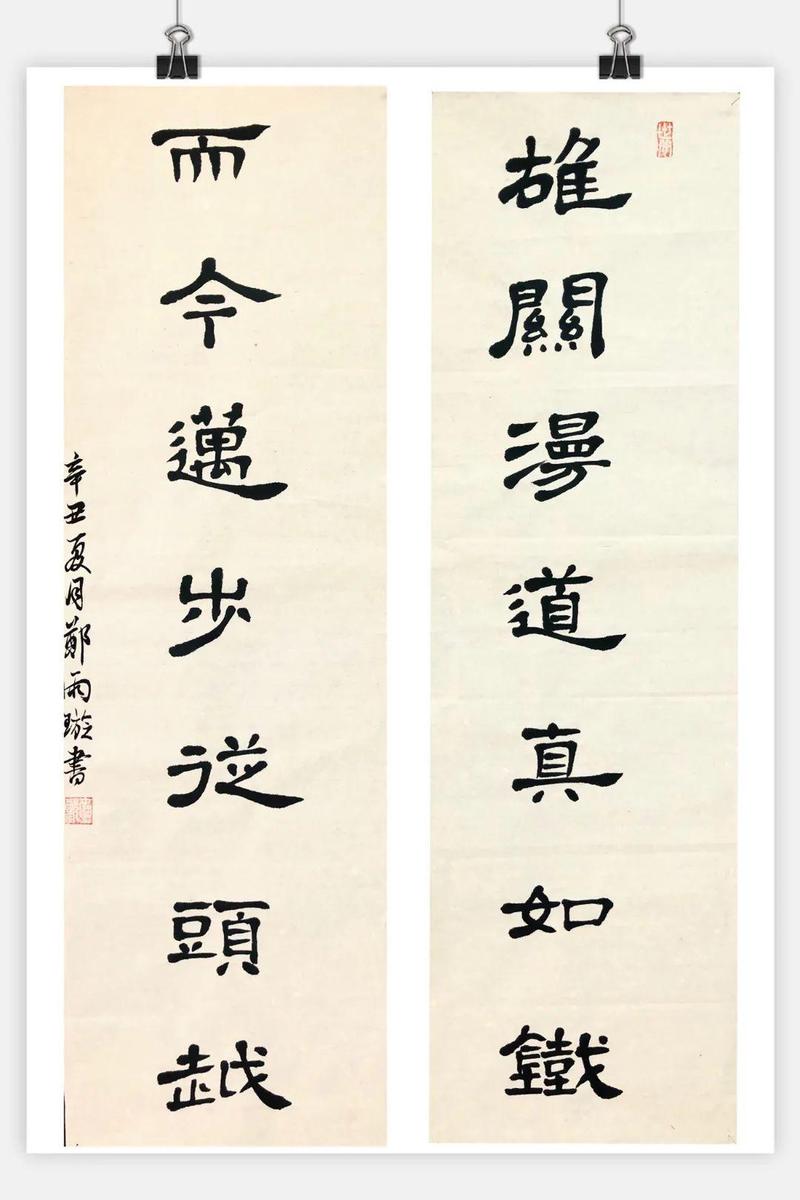 雄關漫道真如鐵
而今邁步從頭越
辛丑夏月鄭雨璇書